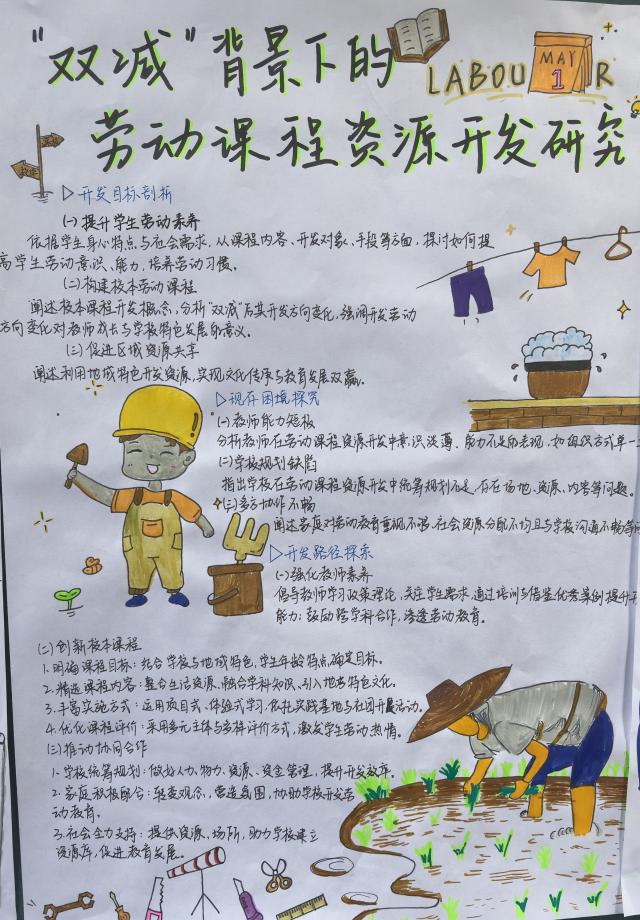 "双减"背景下的
LABOU R
MAY
1
劳动课程资源开发研究
▷开发目标剖析
(一)提升学生劳动素养
依据学生身心特点与社会需求，从课程内容、开发对象、手段等方面，探讨如何提
高学生劳动意识、能力，培养劳动习惯。
(二)构建校本劳动课程
阐述校本课程开发概念，分析"双减"后其开发方向变化，强调开发劳动
方向变化对教师成长与学校特色发展的意义。
(三)促进区域资源共享
阐述利用地域特色开发资源，实现文化传承与教育发展双赢。
▷现存困境探究
(一)教师能力短板
分析教师在劳动课程资源开发中意识淡薄、能力不足的表现，如组织方式单一
(二)学校规划缺陷
指出学校在劳动课程资源开发中统筹规划不足，存在场地、资源、内容等问题。
(三)多方协作不畅
阐述家庭对劳动教育重视不够，社会资源分配不均且与学校沟通不畅等问
▷开发路径探索
(一)强化教师素养
倡导教师学习政策理论，关注学生需求，通过培训与借鉴优秀案例提升开
能力；鼓励跨学科合作，渗透劳动教育。
(二)创新校本课程
1.明确课程目标：结合学校与地域特色，学生年龄特点确定目标。
2.精选课程内容：整合生活资源，融合学科知识，引入地方特色文化。
3.丰富实施方式：运用项目式、体验式学习，依托实践基地与社团开展活动。
4.优化课程评价：采用多元主体与多样评价方式，激发学生劳动热情。
(三)推动协同合作
1.学校统筹规划：做好人力、物力、资源、资金管理，提升开发效率。
2.家庭积极配合：转变观念，营造氛围，协助学校开发劳
动教育。
3.社会全力支持：提供资源、场所，助力学校建立
资源库，促进教育发展。